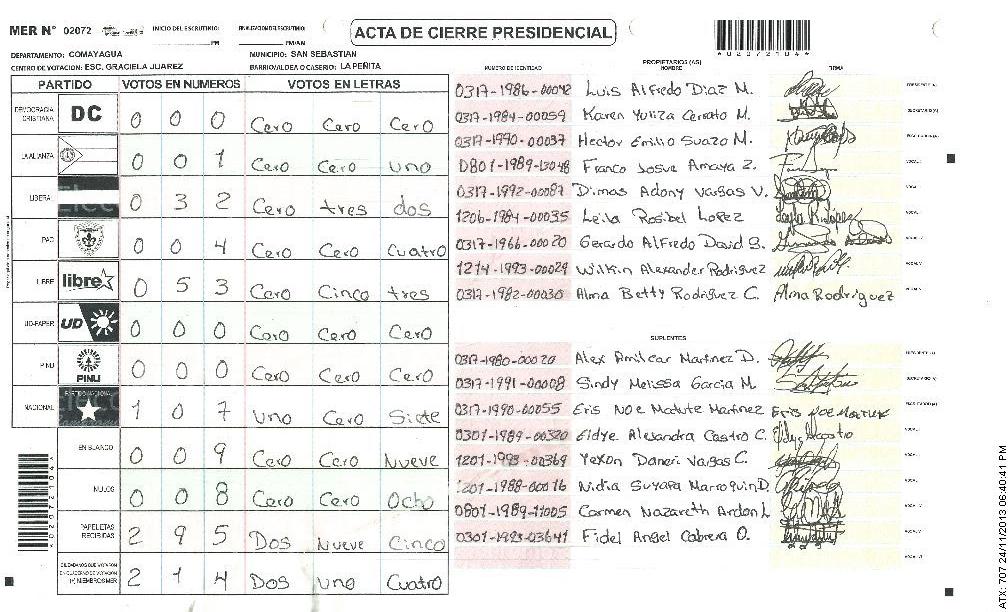 MER N° 02072
INICIO DEL ESCRUTINIO: PM
FINALIZACION DEL ESCRUTINIO: PM/AM
ACTA DE CIERRE PRESIDENCIAL
*02072104*
DEPARTAMENTO: COMAYAGUA
MUNICIPIO: SAN SEBASTIAN
CENTRO DE VOTACION: ESC. GRACIELA JUAREZ
BARRIO/ALDEA O CASERIO: LA PEÑITA
PARTIDO VOTOS EN NUMEROS VOTOS EN LETRAS
DEMOCRACIA CRISTIANA DC 0 0 0 Cero Cero Cero
LA ALIANZA 0 0 1 Cero Cero uno
LIBERAL 0 3 2 Cero tres dos
PAC 0 0 4 Cero Cero Cuatro
LIBRE libre 0 5 3 Cero Cinco tres
UD-FAPER UD 0 0 0 Cero Cero Cero
PINU PINU 0 0 0 Cero Cero Cero
NACIONAL 1 0 7 Uno Cero Siete
EN BLANCO 0 0 9 Cero Cero Nueve
NULOS 0 0 8 Cero Cero Ocho
PAPELETAS RECIBIDAS 2 9 5 Dos Nueve Cinco
CIUDADANOS QUE VOTARON 2 1 4 Dos Uno Cuatro
*02072104*
PROPIETARIOS (AS)
NUMERO DE IDENTIDAD NOMBRE FIRMA
0317-1986-00042 Luis Alfredo Diaz M.
0317-1984-00059 Karen Yuliza Cerrato M.
0317-1990-00037 Hector Emilio Suazo M.
0801-1989-13048 Franco Josue Amaya Z.
0317-1992-00087 Dimas Adony Vargas V.
1206-1984-00035 Leila Rosibel Lopez
0317-1966-00020 Gerardo Alfredo David S.
1214-1993-00029 Wilkin Alexander Rodriguez
0317-1982-00030 Alma Betty Rodriguez C. Alma Rodriguez
SUPLENTES
0317-1980-00020 Alex Amilcar Martinez D.
0317-1991-00008 Sindy Melissa Garcia M.
0317-1990-00055 Eris Noe Matute Martinez
0301-1989-00320 Eidye Alexandra Castro C.
1201-1993-00369 Yexon Daneri Vargas C.
1201-1988-00016 Nidia Suyapa Marroquin D.
0801-1989-11005 Carmen Nazareth Ardon L
0301-1993-03641 Fidel Angel Cabrera O.
ATX: 707 24/11/2013 06:40:41 PM